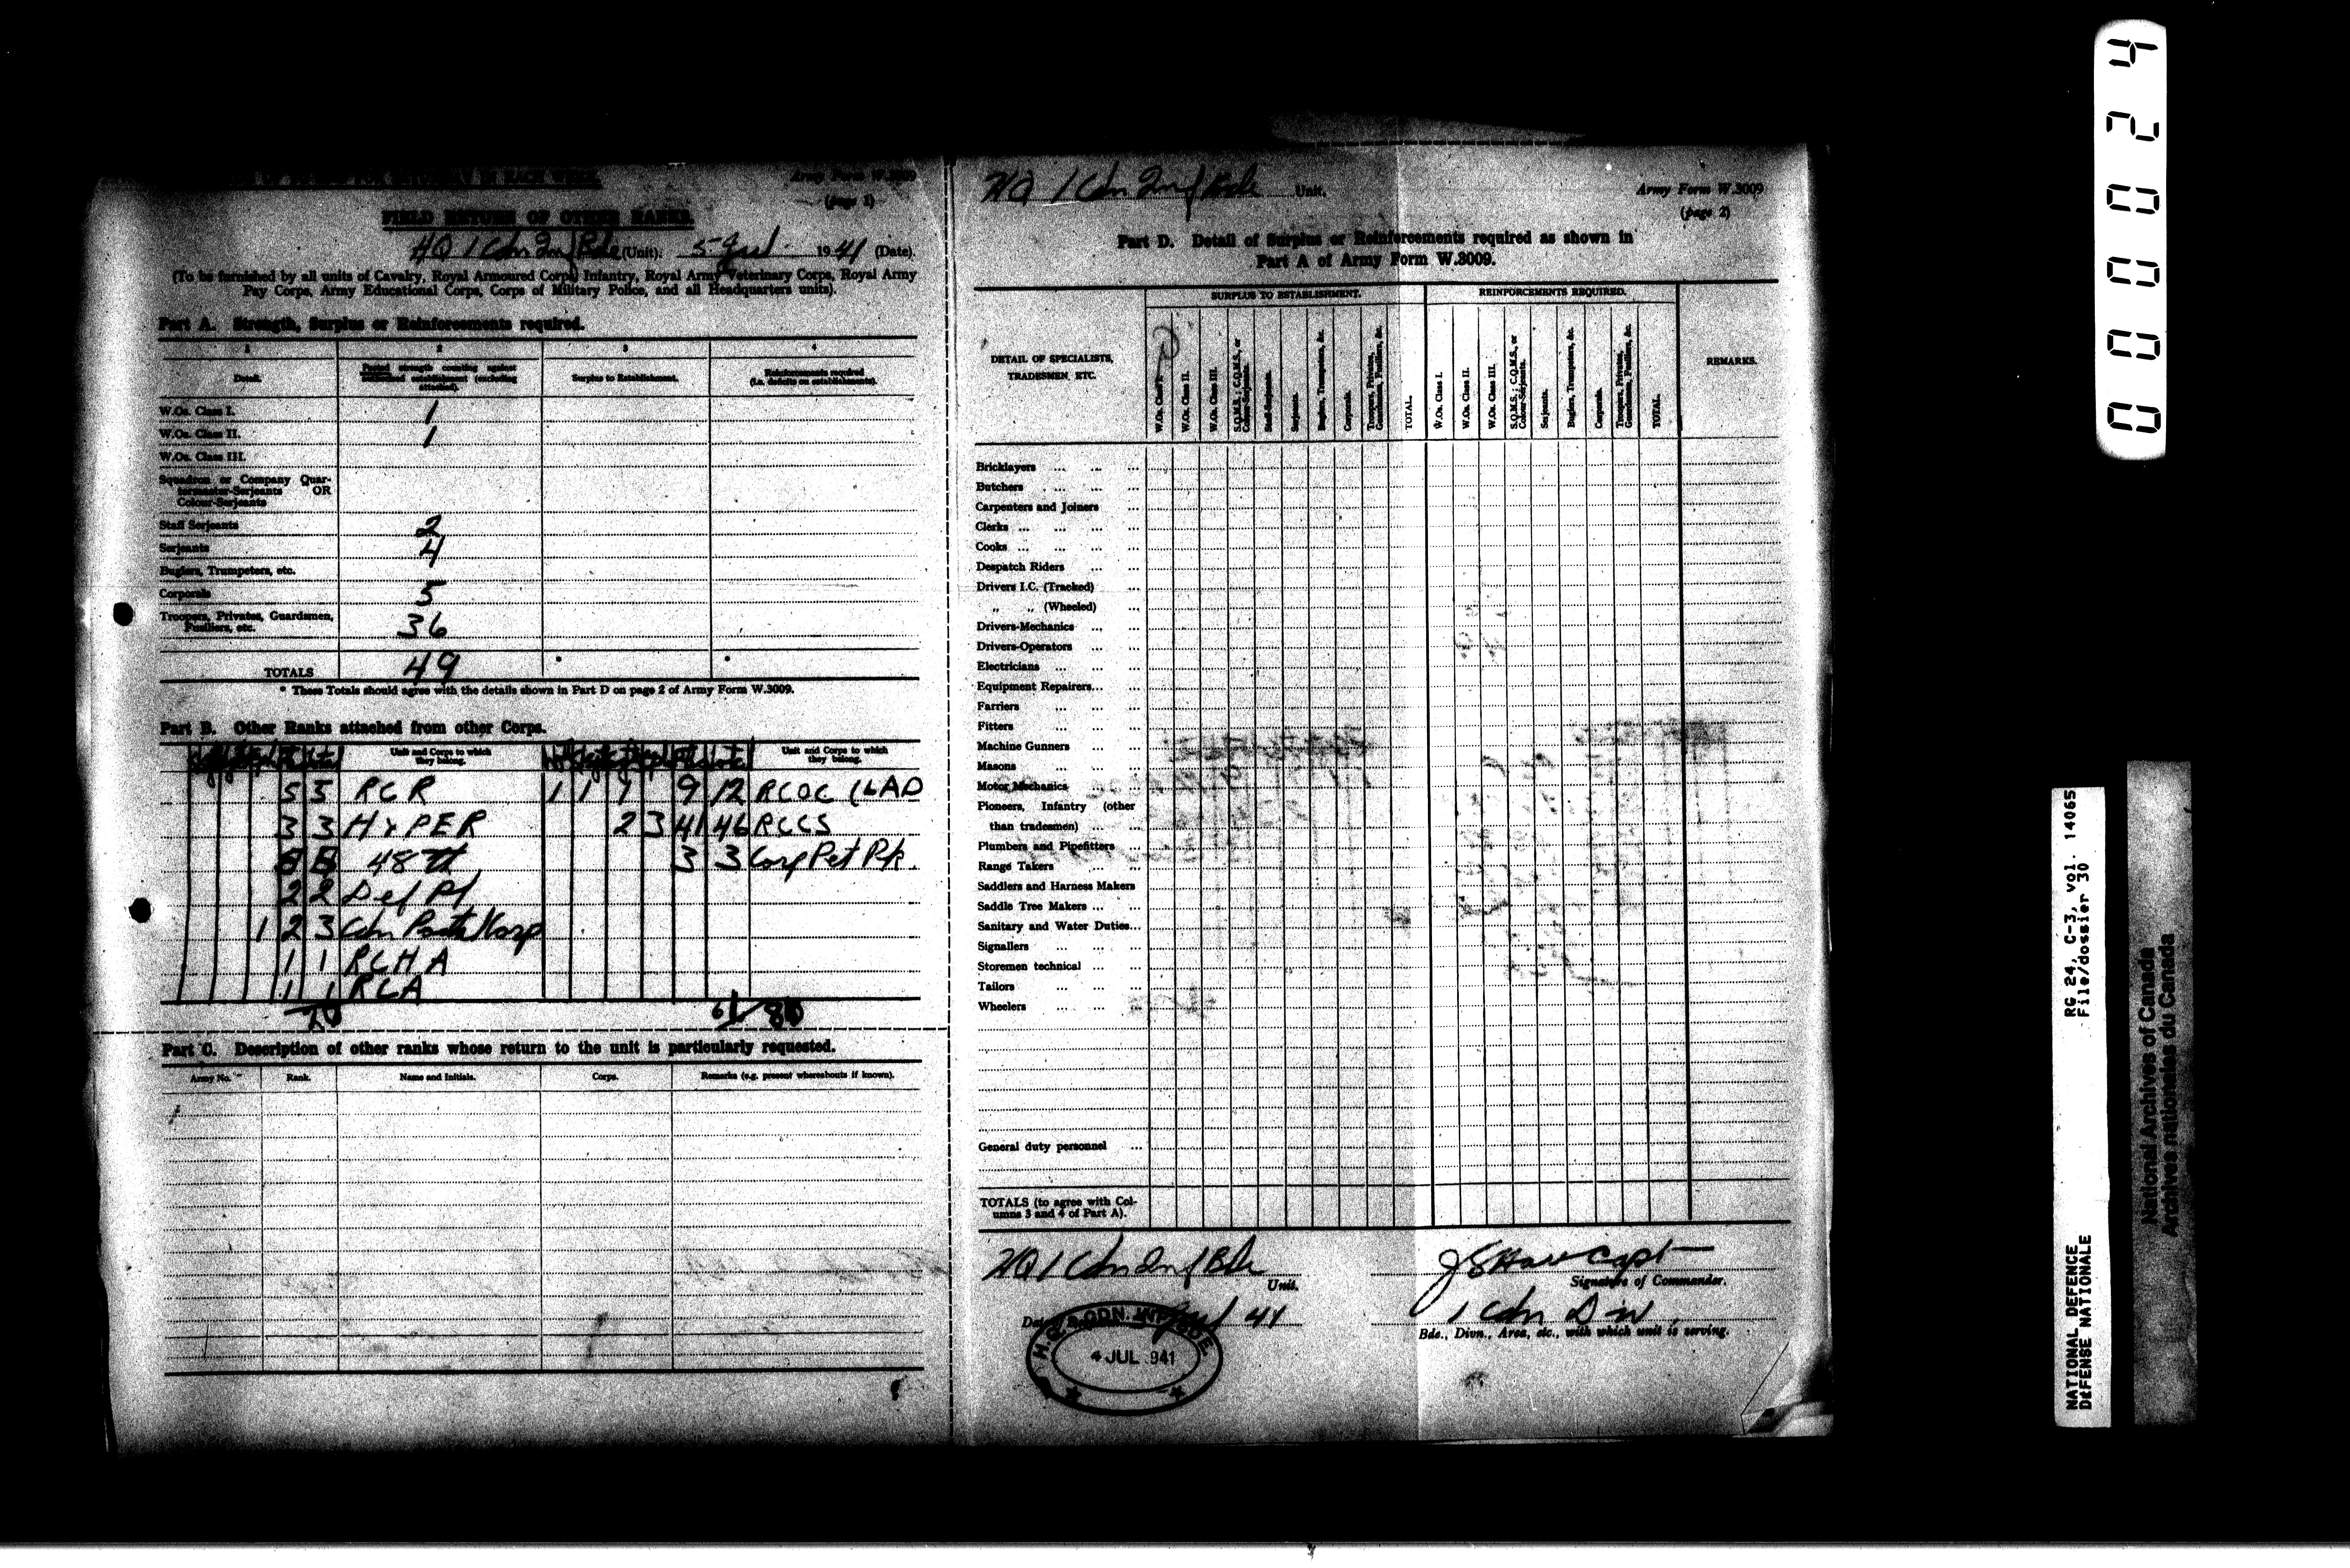 FIELD RETURN OF OTHER RANKS.
Army Form W.3009
(page 1)
HQ 1 Cdn Inf Bde (Unit). 5 Jul 1941 (Date).
(To be furnished by all units of Cavalry, Royal Armoured Corps, Infantry, Royal Army Veterinary Corps, Royal Army
Pay Corps, Army Educational Corps, Corps of Military Police, and all Headquarters units).
Part A. Strength, Surplus or Reinforcements required.
1 2 3 4
Detail. Posted strength counting against authorised establishment (excluding attached). Surplus to Establishment. Reinforcements required (i.e. deficits on establishments).
W.Os. Class I. 1
W.Os. Class II. 1
W.Os. Class III.
Squadron or Company Quar-
termaster-Serjeants OR
Colour-Serjeants
Staff Serjeants 2
Serjeants 4
Buglers, Trumpeters, etc.
Corporals 5
Troopers, Privates, Guardsmen,
Fusiliers, etc. 36
TOTALS 49 * *
* These Totals should agree with the details shown in Part D on page 2 of Army Form W.3009.
Part B. Other Ranks attached from other Corps.
Unit and Corps to which they belong. Unit and Corps to which they belong.
5 5 RCR 1 1 1 9 12 RCOC (LAD
3 3 H&PER 2 3 41 46 RCCS
48th 3 3 Corp Pet Pk
2 2 Def Pl
1 2 3 Cdn Postal Corp
1 1 RCHA
1 1 RCA
61
Part C. Description of other ranks whose return to the unit is particularly requested.
Army No. Rank. Name and Initials. Corps. Remarks (e.g. present whereabouts if known).
HQ 1 Cdn Inf Bde Unit.
Army Form W.3009
(page 2)
Part D. Detail of Surplus or Reinforcements required as shown in
Part A of Army Form W.3009.
DETAIL OF SPECIALISTS,
TRADESMEN, ETC.
SURPLUS TO ESTABLISHMENT.
W.Os. Class I.
W.Os. Class II.
W.Os. Class III.
S.Q.M.S.; C.Q.M.S., or Colour-Serjeants.
Staff-Serjeants.
Serjeants.
Buglers, Trumpeters, &c.
Corporals.
Troopers, Privates, Guardsmen, Fusiliers, &c.
TOTAL.
REINFORCEMENTS REQUIRED.
W.Os. Class I.
W.Os. Class II.
W.Os. Class III.
S.Q.M.S.; C.Q.M.S., or Colour-Serjeants.
Serjeants.
Buglers, Trumpeters, &c.
Corporals.
Troopers, Privates, Guardsmen, Fusiliers, &c.
TOTAL.
REMARKS.
Bricklayers ... ... ...
Butchers ... ... ...
Carpenters and Joiners ...
Clerks ... ... ... ...
Cooks ... ... ... ...
Despatch Riders ... ...
Drivers I.C. (Tracked) ...
„ „ (Wheeled) ...
Drivers-Mechanics ... ...
Drivers-Operators ... ...
Electricians ... ... ...
Equipment Repairers... ...
Farriers ... ... ...
Fitters ... ... ...
Machine Gunners ... ...
Masons ... ... ...
Motor Mechanics ... ...
Pioneers, Infantry (other
than tradesmen) ... ...
Plumbers and Pipefitters ...
Range Takers ... ...
Saddlers and Harness Makers
Saddle Tree Makers ... ...
Sanitary and Water Duties...
Signallers ... ... ...
Storemen technical ... ...
Tailors ... ... ...
Wheelers ... ... ...
General duty personnel ...
TOTALS (to agree with Col-
umns 3 and 4 of Part A).
HQ 1 Cdn Inf Bde
Unit.
Capt
Signature of Commander.
Date Jul 41
1 Cdn Div
Bde., Divn., Area, etc., with which unit is serving.
H.Q. 1 CDN. INF. BDE.
4 JUL 941
000024
RG 24, C-3, vol. 14065
File/dossier 30
NATIONAL DEFENCE
DEFENSE NATIONALE
National Archives of Canada
Archives nationales du Canada